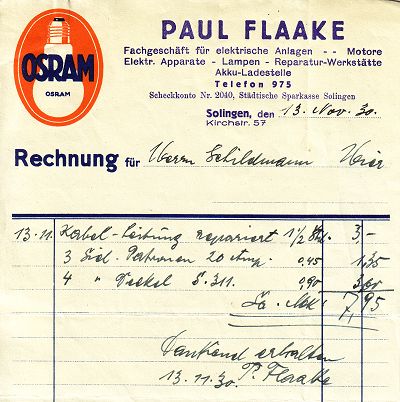 OSRAM
OSRAM
PAUL FLAAKE
Fachgeschäft für elektrische Anlagen - - Motore
Elektr. Apparate - Lampen - Reparatur-Werkstätte
Akku-Ladestelle
Telefon 975
Scheckkonto Nr. 2040, Städtische Sparkasse Solingen
Solingen, den 13. Nov. 30.
Kirchstr. 57
Rechnung für Herrn Schildmann Hier
13.11. Kabel-Leitung repariert 1 1/2 Std. 3,-
3 Sich. Patronen 20 Amp. 0,45 1,35
4 " Deckel S.311. 0,90
7,95
Dankend erhalten
13.11.30. P. Flaake